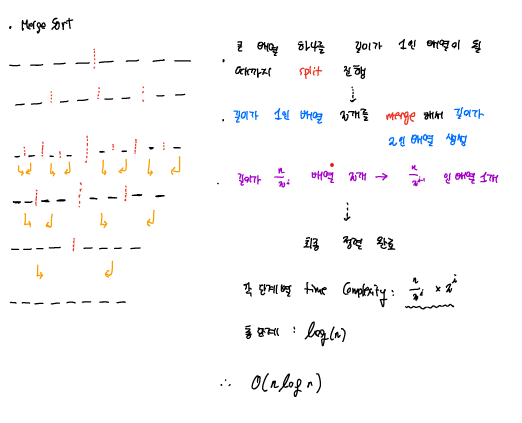 • Merge Sort
• 큰 배열 하나를 길이가 1인 배열이 될
때까지 split 진행
• 길이가 1인 배열 2개를 merge 해서 길이가
2인 배열 생성
• 길이가 n/2^i 배열 2개 → n/2^{i-1} 인 배열 1개
최종 정렬 완료
각 단계별 time Complexity : n/2^i × 2^i
총 단계 : log(n)
∴ O(n log n)